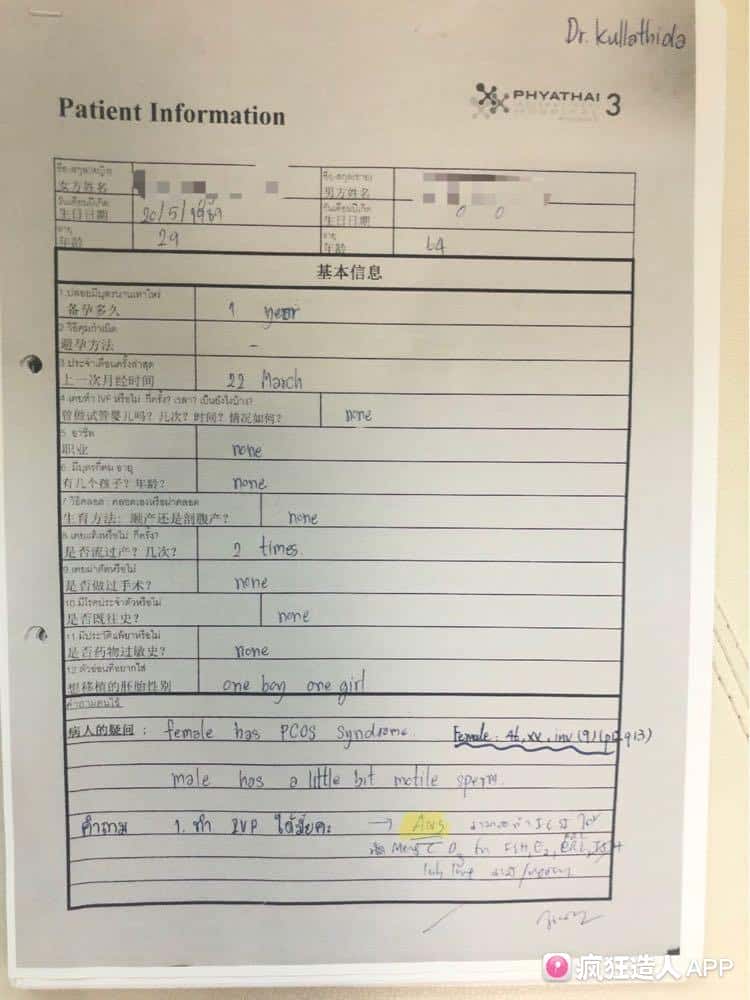 Dr. Kullathida
PHYATHAI 3
Patient Information
ชื่อ-สกุล(หญิง)
女方姓名
ชื่อ-สกุล(ชาย)
男方姓名
วันเดือนปีเกิด
生日日期 20/5/1989
วันเดือนปีเกิด
生日日期
อายุ
年龄 29
อายุ
年龄
基本信息
1.ปล่อยมีบุตรนานเท่าไหร่
备孕多久 1 year
2.วิธีคุมกำเนิด
避孕方法 -
3.ประจำเดือนครั้งล่าสุด
上一次月经时间 22 March
4.เคยทำ IVF หรือไม่ กี่ครั้ง? เวลา? เป็นยังไงบ้าง?
曾做试管婴儿吗？几次？时间？情况如何？ none
5. อาชีพ
职业 none
6. มีบุตรกี่คน อายุ
有几个孩子？年龄？ none
7.วิธีคลอด : คลอดเองหรือผ่าคลอด
生育方法：顺产还是剖腹产？ none
8.เคยแท้งหรือไม่ กี่ครั้ง?
是否流过产？几次？ 2 times.
9.เคยผ่าตัดหรือไม่
是否做过手术？ none
10.มีโรคประจำตัวหรือไม่
是否既往史？ none
11.มีประวัติแพ้ยาหรือไม่
是否药物过敏史？ none
12.ตัวอ่อนที่อยากใส่
想移植的胚胎性别 one boy one girl
คำถามคนไข้
病人的疑问： female has PCOS syndrome. Female : 46,xx, inv(9)(p12q13)
male has a little bit motile sperm.
คำถาม 1. ทำ IVF ได้มั้ยคะ → Ans
疯狂造人 APP